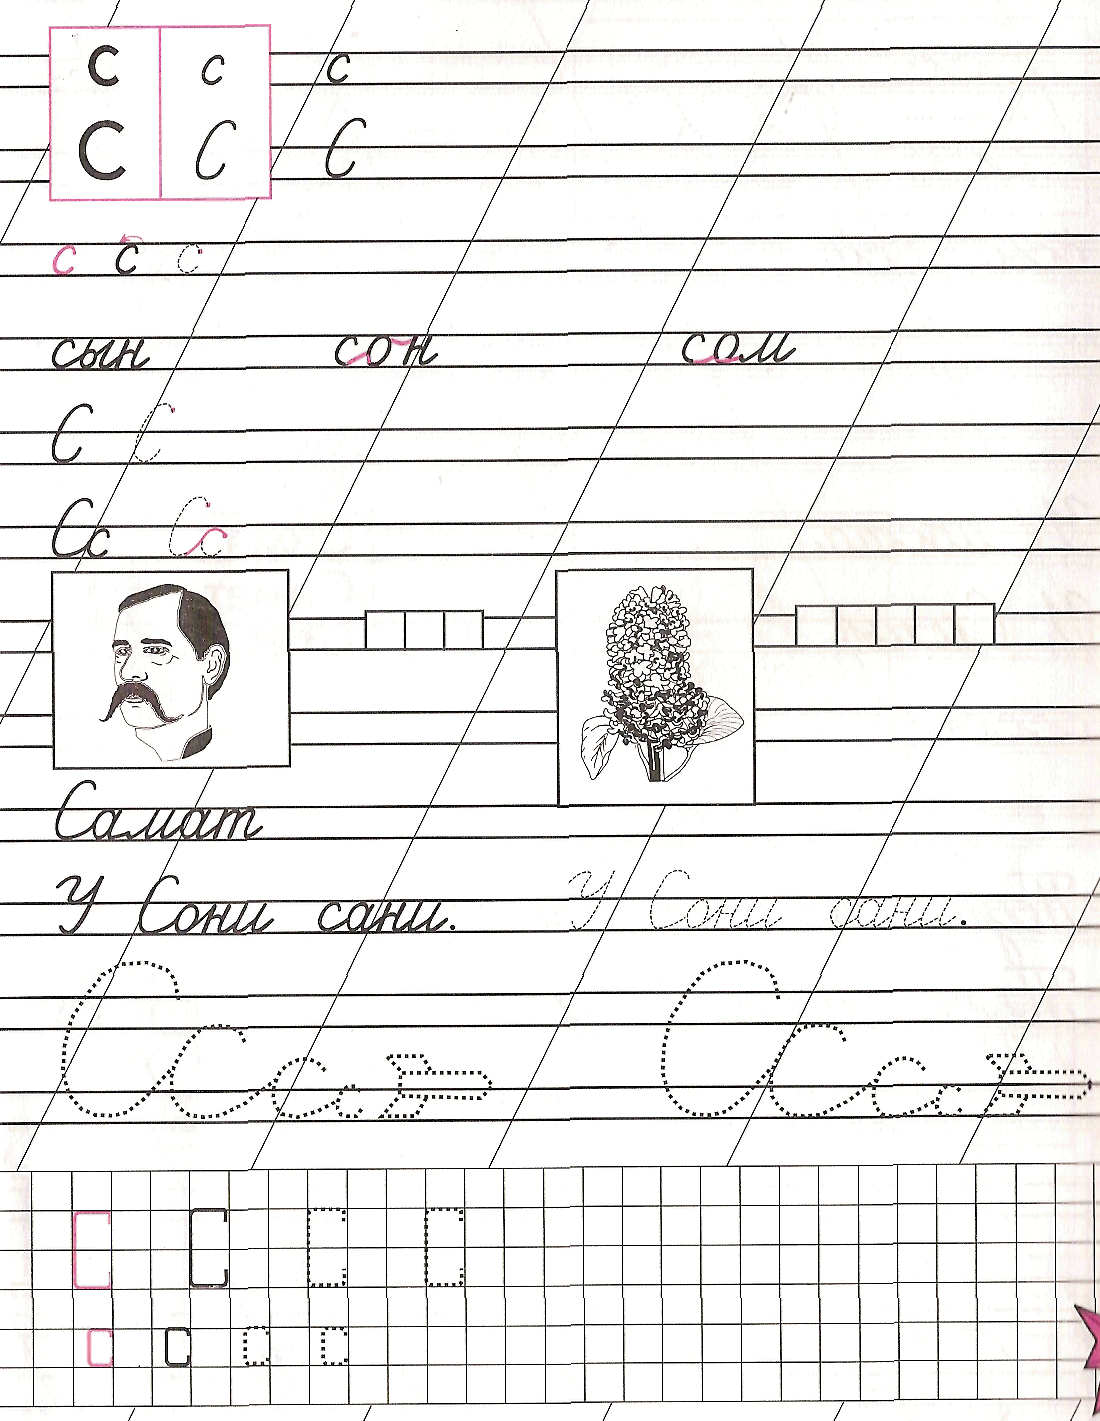 с с с
С С С
с с с
сын сон сом
С С
Сс Сс
Самат
У Сони сани. У Сони сани.
Сссс Сссс
С С С С
с с с с